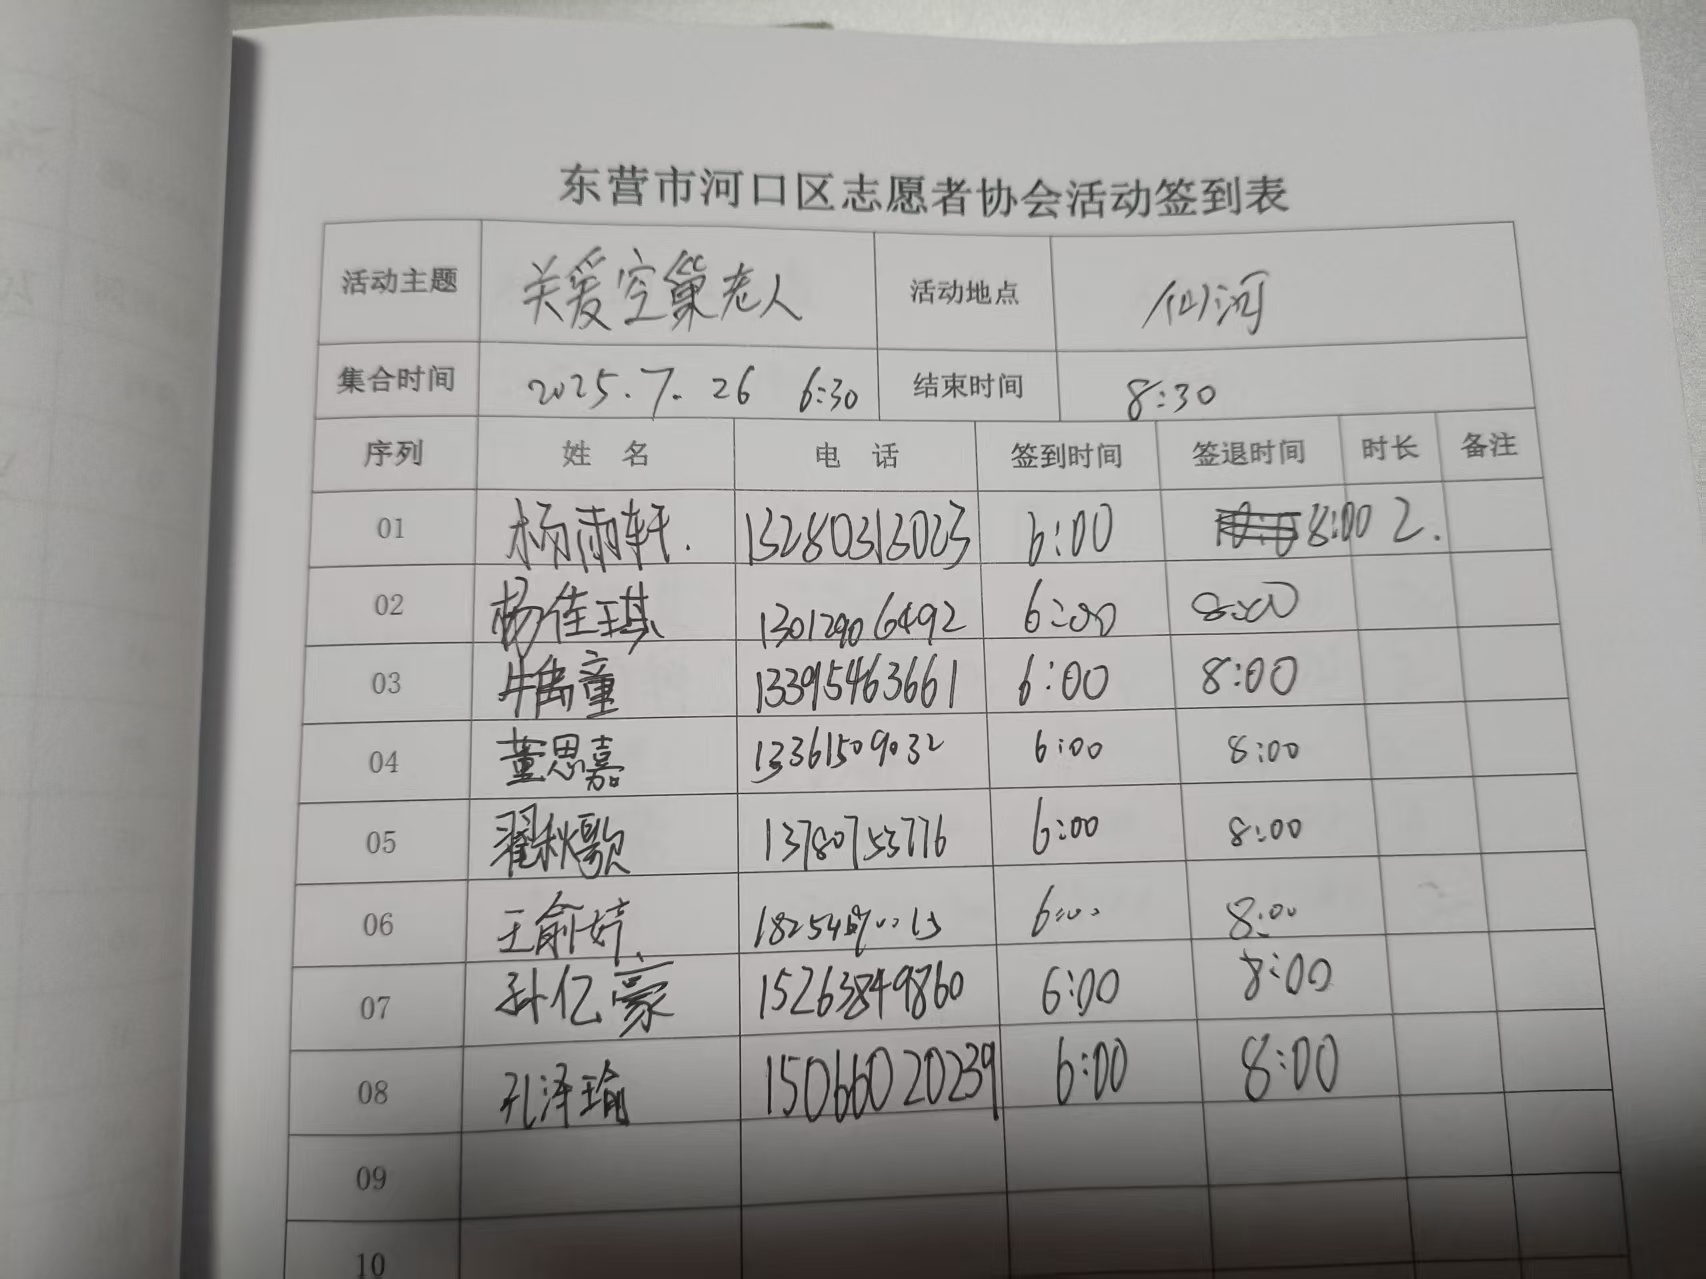 东营市河口区志愿者协会活动签到表
活动主题 关爱空巢老人 活动地点 仙河
集合时间 2025.7.26 6:30 结束时间 8:30
序列 姓名 电话 签到时间 签退时间 时长 备注
01 杨雨轩. 13280313023 6:00 8:00 2.
02 杨佳琪 13012906492 6:00 8:00
03 牛禹童 13395463661 6:00 8:00
04 董思嘉 13361509032 6:00 8:00
05 翟秋歌 13780753776 6:00 8:00
06 王俞婷 6:00 8:00
07 孙亿豪 15263849860 6:00 8:00
08 孔泽瑜 15066020239 6:00 8:00
09
10